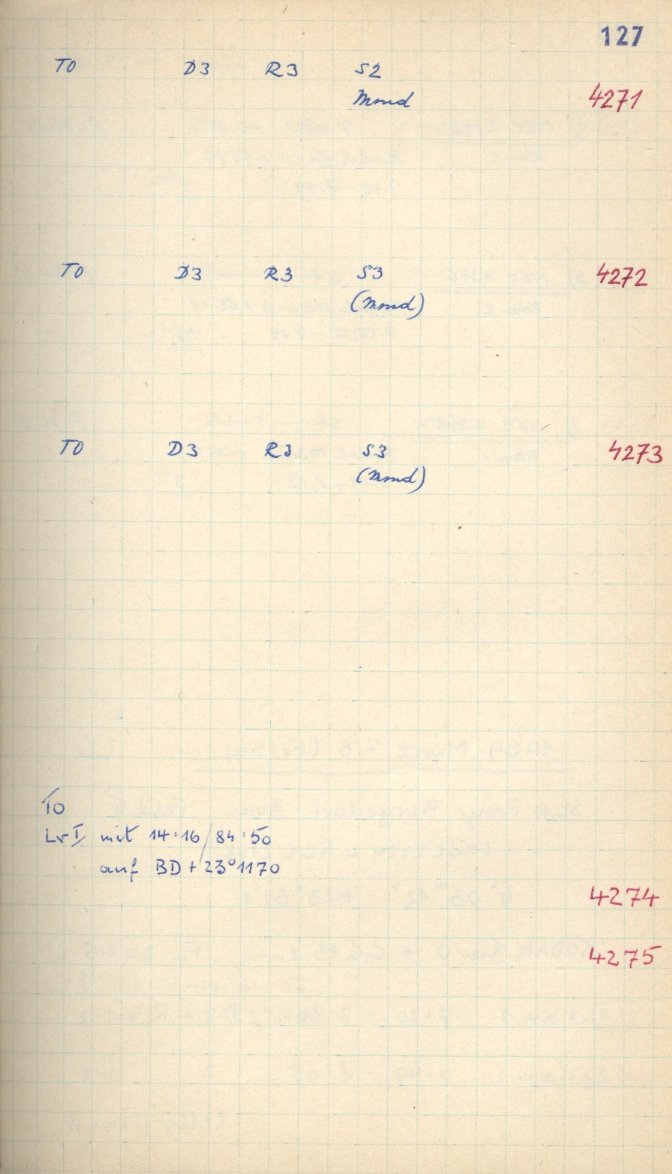 127
TO D3 R3 S2
Mond 4271
TO D3 R3 S3 4272
(Mond)
TO D3 R3 S3 4273
(Mond)
TO
mit 14:16/84:50
auf BD+23°1170
4274
4275